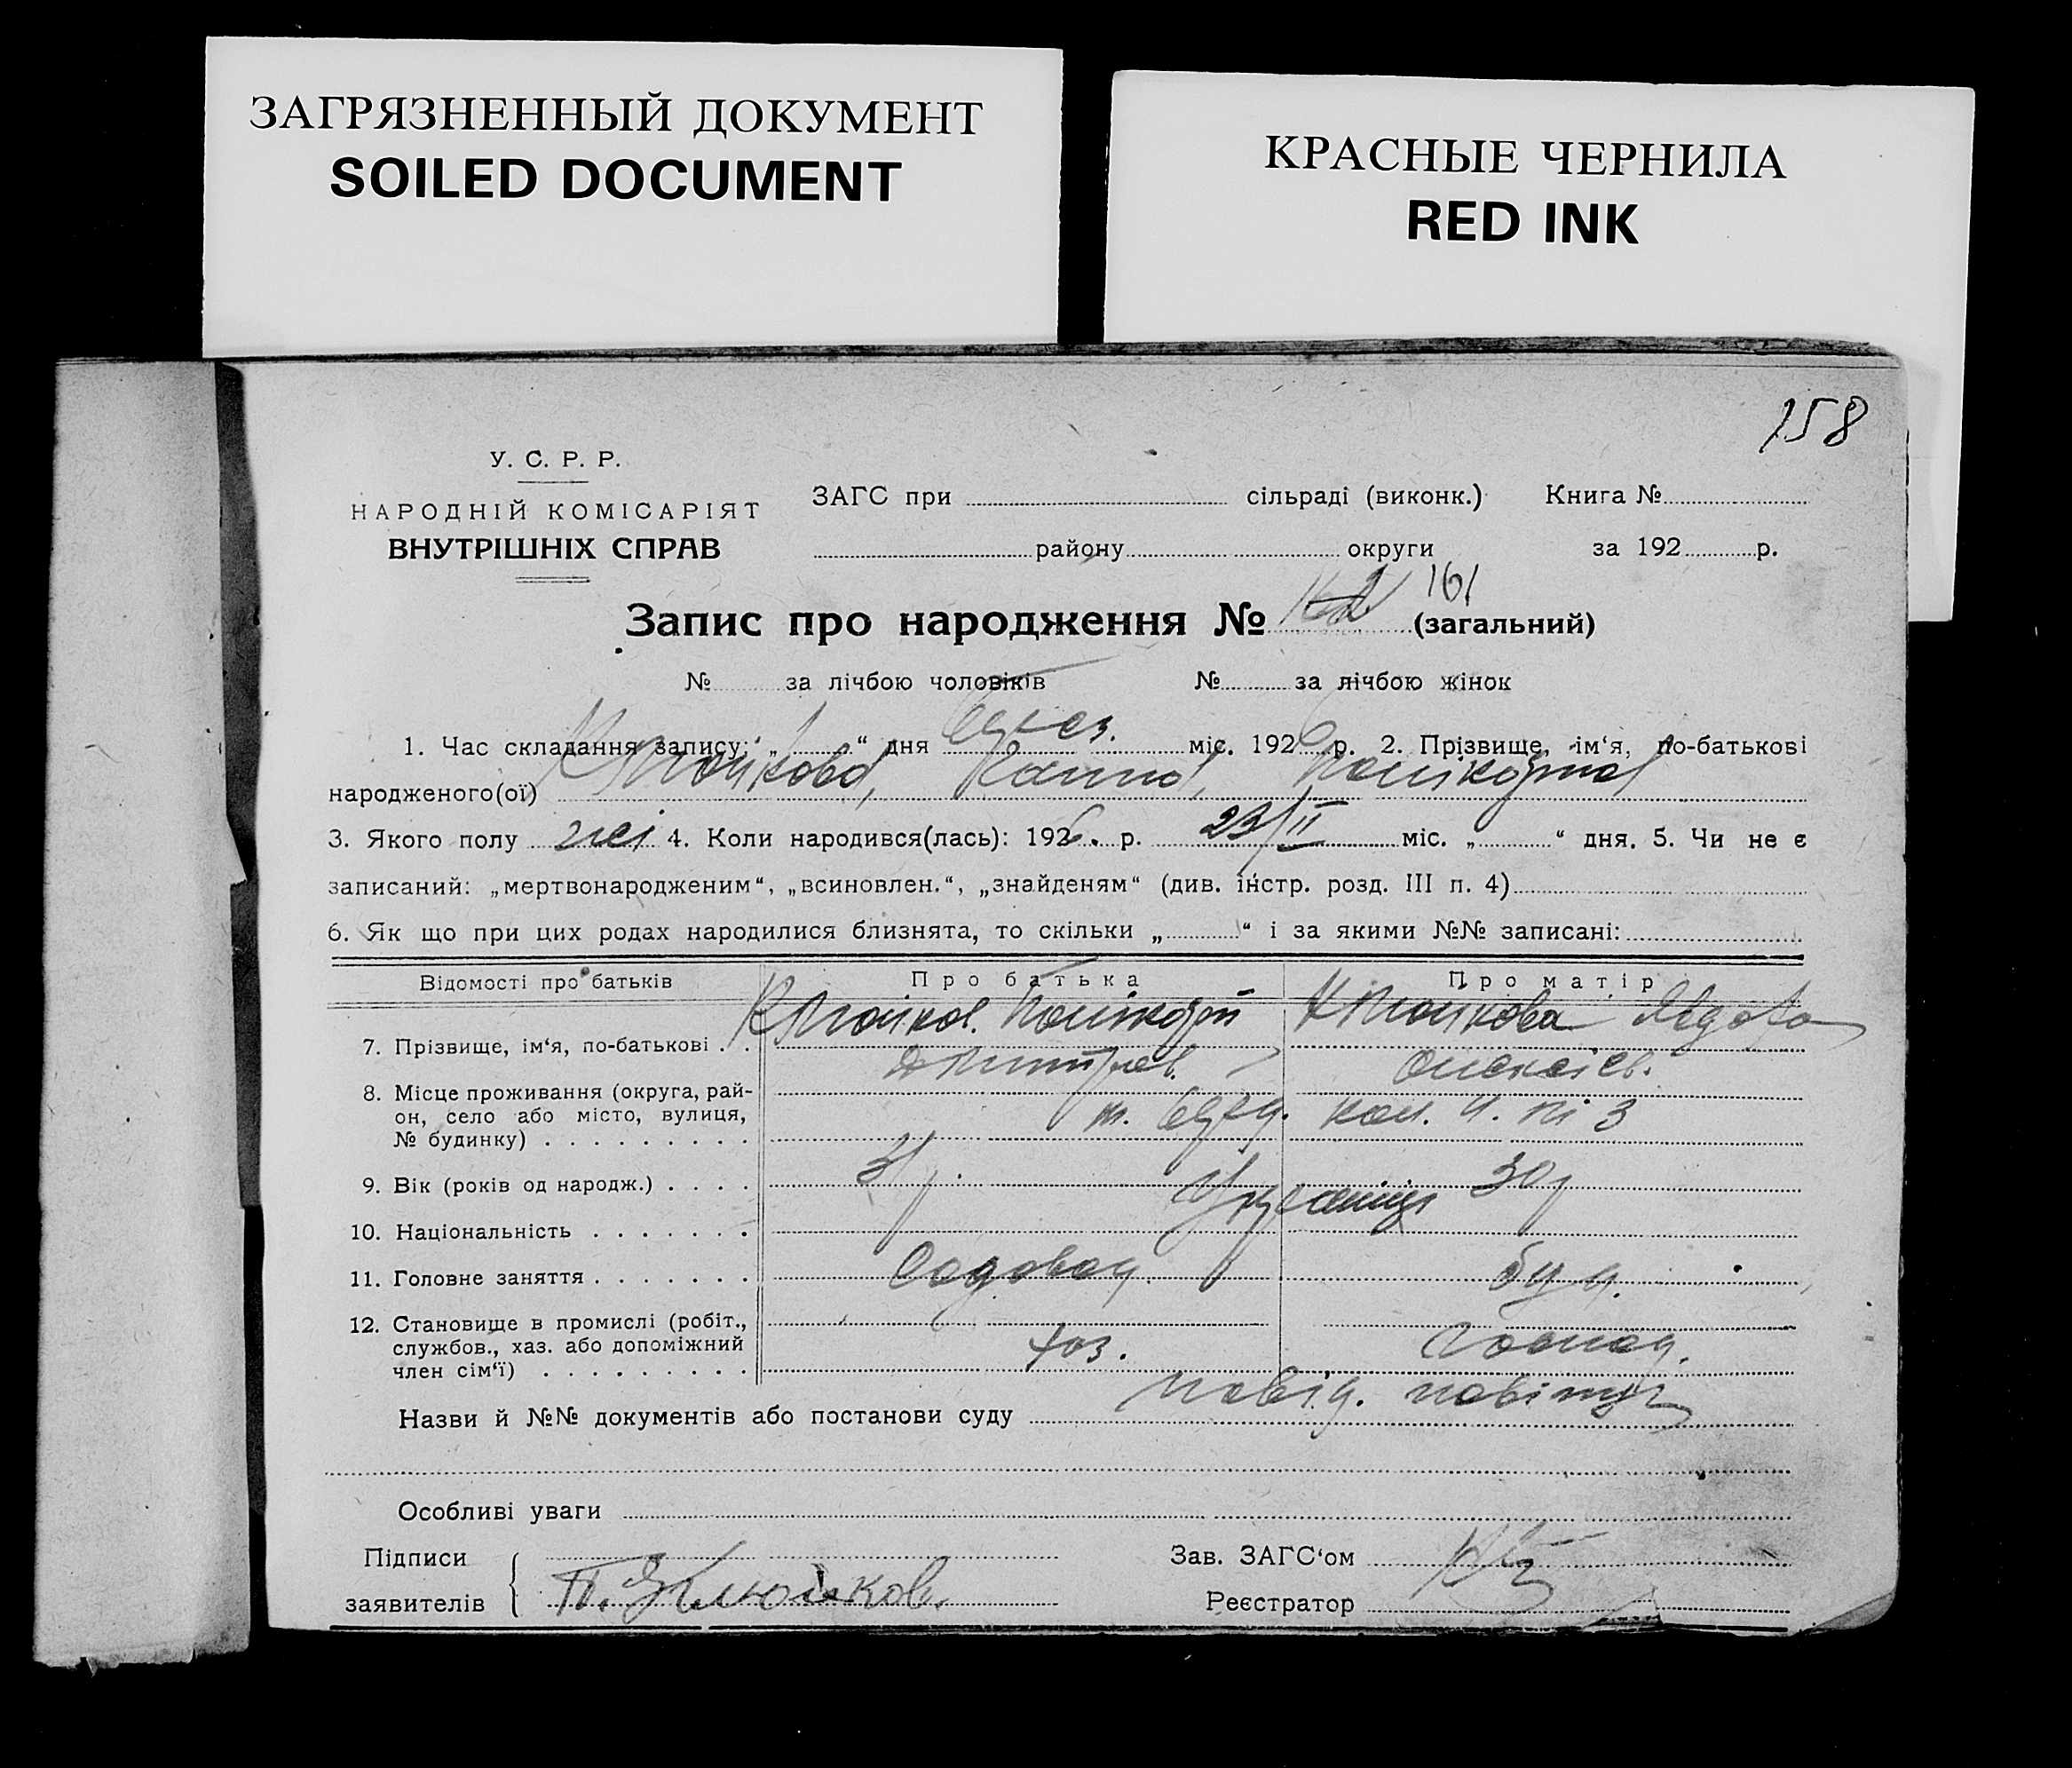 ЗАГРЯЗНЕННЫЙ ДОКУМЕНТ
SOILED DOCUMENT
КРАСНЫЕ ЧЕРНИЛА
RED INK
158
У. С. Р. Р.
НАРОДНІЙ КОМІСАРІЯТ
ВНУТРІШНІХ СПРАВ
ЗАГС при сільраді (виконк.) Книга №
району округи за 192 р.
161
Запис про народження № (загальний)
№ за лічбою чоловіків № за лічбою жінок
1. Час складання запису: „ “ дня міс. 1926 р. 2. Прізвище, ім‘я, по-батькові
народженого(ої)
3. Якого полу жі 4. Коли народився(лась): 1926. р. 23/II міс. „ “ дня. 5. Чи не є
записаний: „мертвонародженим“, „всиновлен.“, „знайденям“ (див. інстр. розд. III п. 4)
6. Як що при цих родах народилися близнята, то скільки „ “ і за якими №№ записані:
Відомості про батьків Про батька Про матір
7. Прізвище, ім‘я, по-батькові . . Клюйков. Полікарп Клюйкова
Дмитров. Олексієв.
8. Місце проживання (округа, рай-
он, село або місто, вулиця,
№ будинку) . . . . . . . . . м. кол. ч. № 3
9. Вік (років од народж.) . . . . 31 р. 30 р
10. Національність . . . . . . . Українці
11. Головне заняття . . . . . . . Садовод.
12. Становище в промислі (робіт.,
службов., хаз. або допоміжний
член сім‘ї) . . . . . . . . . хоз. Господ.
Назви й №№ документів або постанови суду повід.
Особливі уваги
Підписи
заявителів П. Клюйков.
Зав. ЗАГС‘ом
Реєстратор